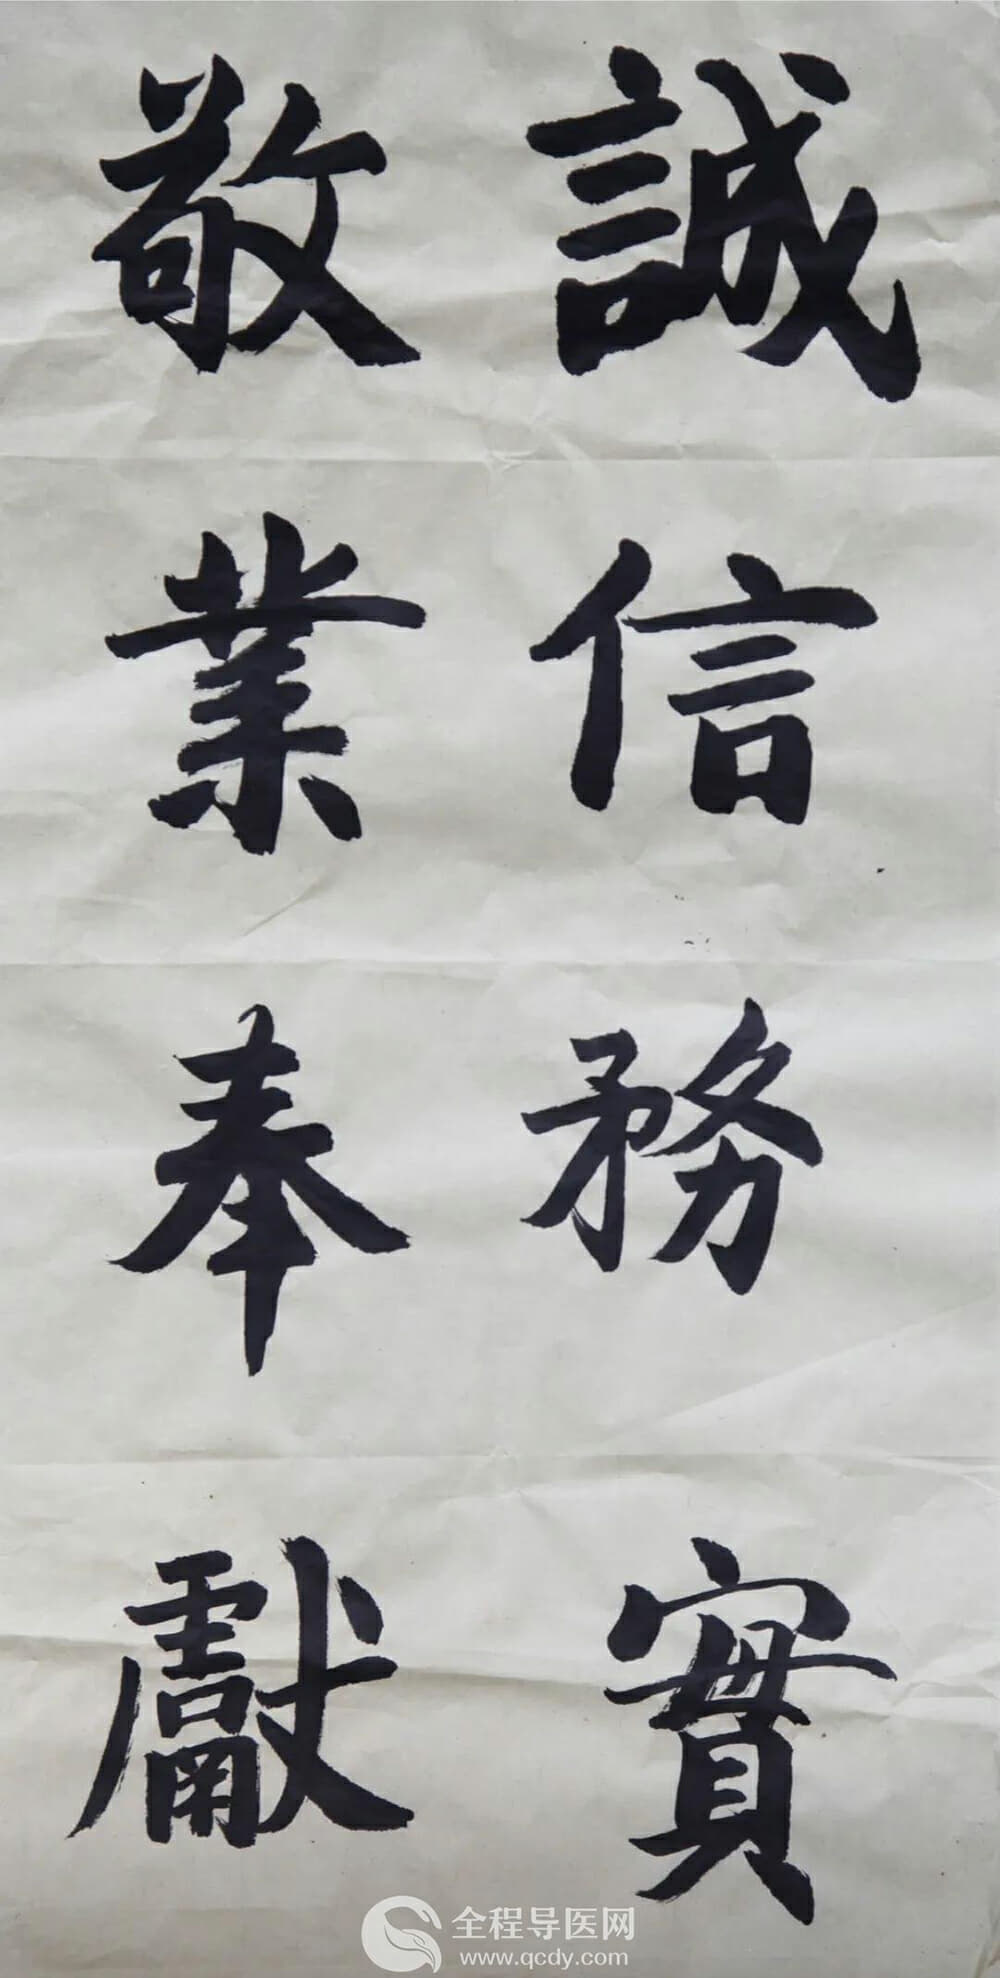 誠信務實
敬業奉獻
全程导医网
www.qcdy.com